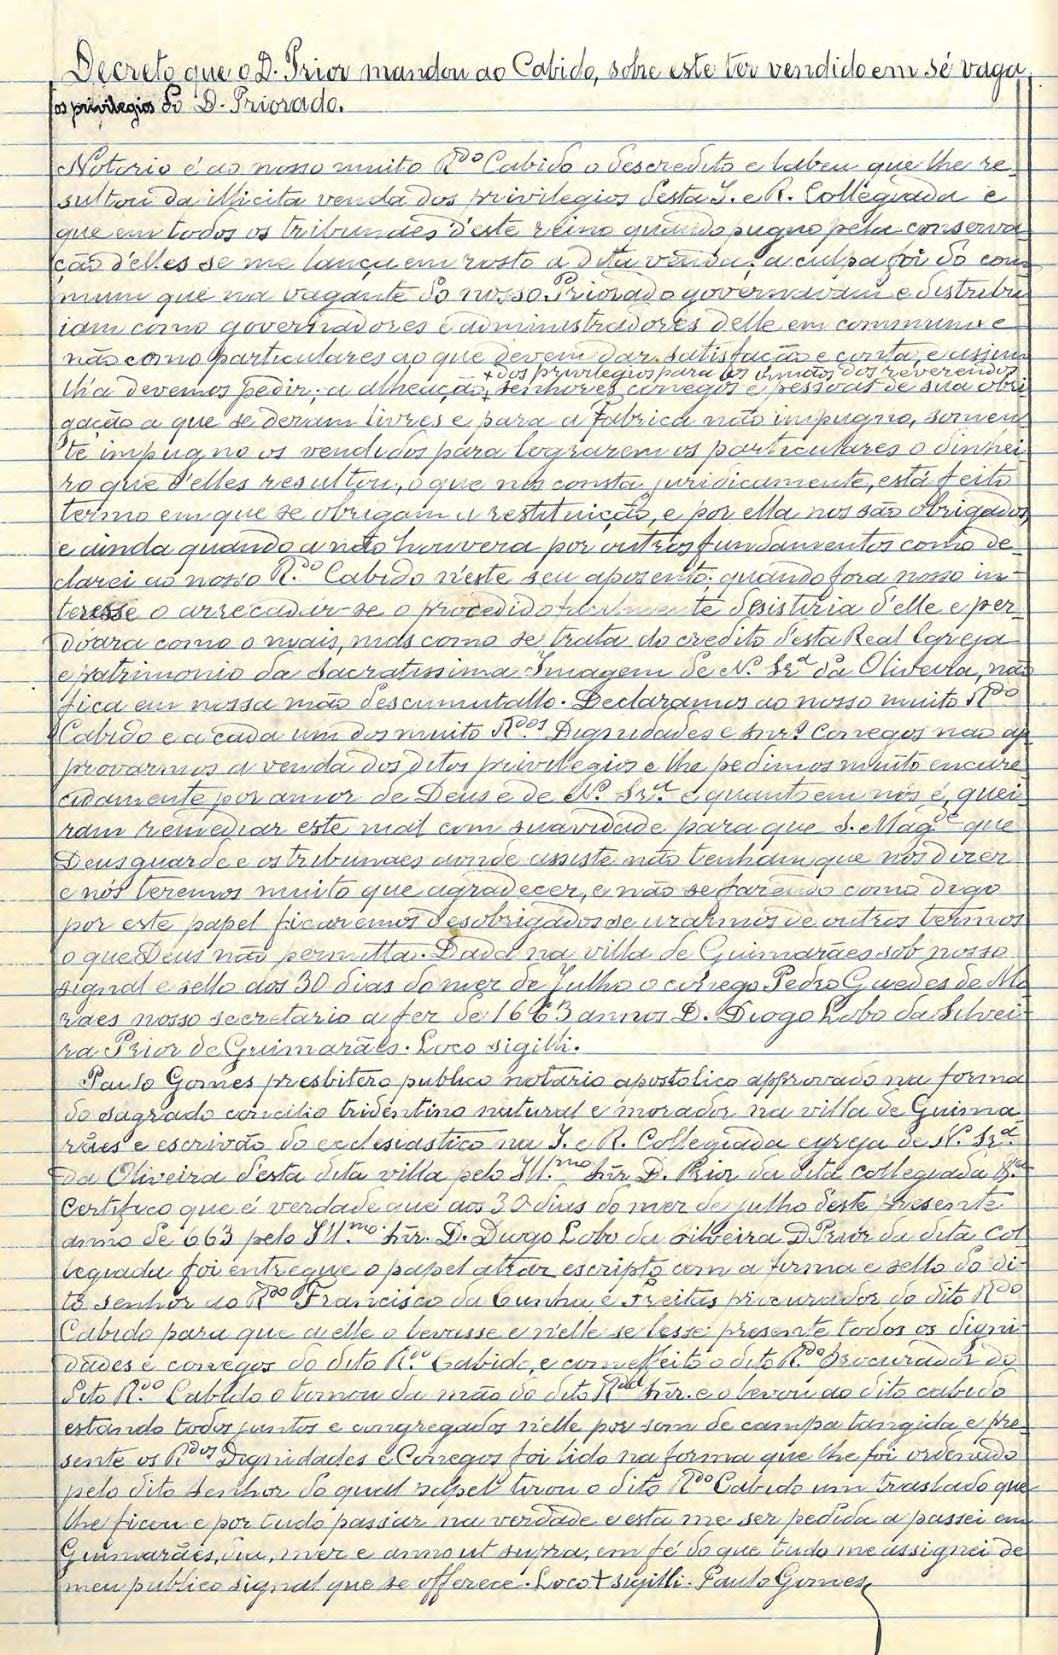 Decreto que o D. Prior mandou ao Cabido, sobre este ter vendido em sé vaga
os privilegios do D. Priorado.
Notorio é ao nosso muito R.do Cabido o descredito e labeu que lhe re-
sultou da illicita venda dos privilegios desta I. e R. Collegiada e
que em todos os tribunaes d'este reino quando pugno pela conserva
ção d'elles se me lança em rosto a dita venda: a culpa foi do com
mum que na vagante do nosso Priorado governavam e distribu
iam como governadores e administradores delle em commum e
não como particulares ao que devem dar satisfação e conta, e assim
+ dos privilegios para os irmãos dos reverendos
lh'a devemos pedir; a alheação, + senhores conegos e pessoas de sua obri
gação a que se deram livres e para a fabrica não impugno, somen
te impugno os vendidos para lograrem os particulares o dinhei-
ro que d'elles resultou, o que nos consta juridicamente, está feito
termo em que se obrigam a restituição, e por ella nos são obrigados,
e ainda quando a não houvera por outros fundamentos como de-
clarei ao nosso R.do Cabido n'este seu aposento: quando fora nosso in-
teresse o arrecadar-se o procedido desistiria d'elle e per-
doara como o mais, mas como se trata do credito d'esta Real Egreja
e patrimonio da Sacratissima Imagem de N.a Sr.a da Oliveira, não
fica em nossa mão descumutallo. Declaramos ao nosso muito R.do
Cabido e a cada um dos muito R.dos Dignidades e Snr.s Conegos não ap
provarmos a venda dos ditos privilegios e lhe pedimos muito encare
cidamente por amor de Deus e de N.a Sr.a e quanto em nós é, quei-
ram remediar este mal com suavidade para que S. Mag.de que
Deus guarde e os tribunaes aonde assiste não tenham que nos dizer
e nós teremos muito que agradecer, e não se fazendo como digo
por este papel ficaremos desobrigados de uzarmos de outros termos
o que Deus não permitta. Dada na villa de Guimarães sob nosso
signal e sello aos 30 dias do mez de Julho o conego Pedro Guedes de Mo
raes nosso secretario a fez de 1663 annos D. Diogo Lobo da Silvei-
ra Prior de Guimarães. Loco sigilli.
Paulo Gomes presbitero publico notario apostolico approvado na forma
do sagrado concilio tridentino natural e morador na villa de Guima
rães e escrivão do ecclesiastico na I. e R. Collegiada egreja de N.a Sr.a
da Oliveira d'esta dita villa pelo Ill.mo Snr. D. Prior da dita collegiada &.a
Certifico que é verdade que aos 30 dias do mez de julho d'este presente
anno de 663 pelo Ill.mo Snr. D. Diogo Lobo da Silveira D. Prior da dita col
legiada foi entregue o papel atraz escripto com a firma e sello do di-
to senhor ao R.do Francisco da Cunha e Freitas procurador do dito R.do
Cabido para que a elle o levasse e n'elle se lesse presente todos os digni-
dades e conegos do dito R.do Cabido, e com effeito o dito R.do procurador do
dito R.do Cabido o tomou da mão do dito R.do Snr. e o levou ao dito cabido
estando todos juntos e congregados n'elle por som de campa tangida e pre-
sente os R.dos Dignidades e Conegos foi lido na forma que lhe foi ordenado
pelo dito senhor do qual papel tirou o dito R.do Cabido um traslado que
lhe ficou e por tudo passar na verdade e esta me ser pedida a passei em
Guimarães, dia, mez e anno ut supra, em fé do que tudo me assignei de
meu publico signal que se offerece. Loco + sigilli. Paulo Gomes